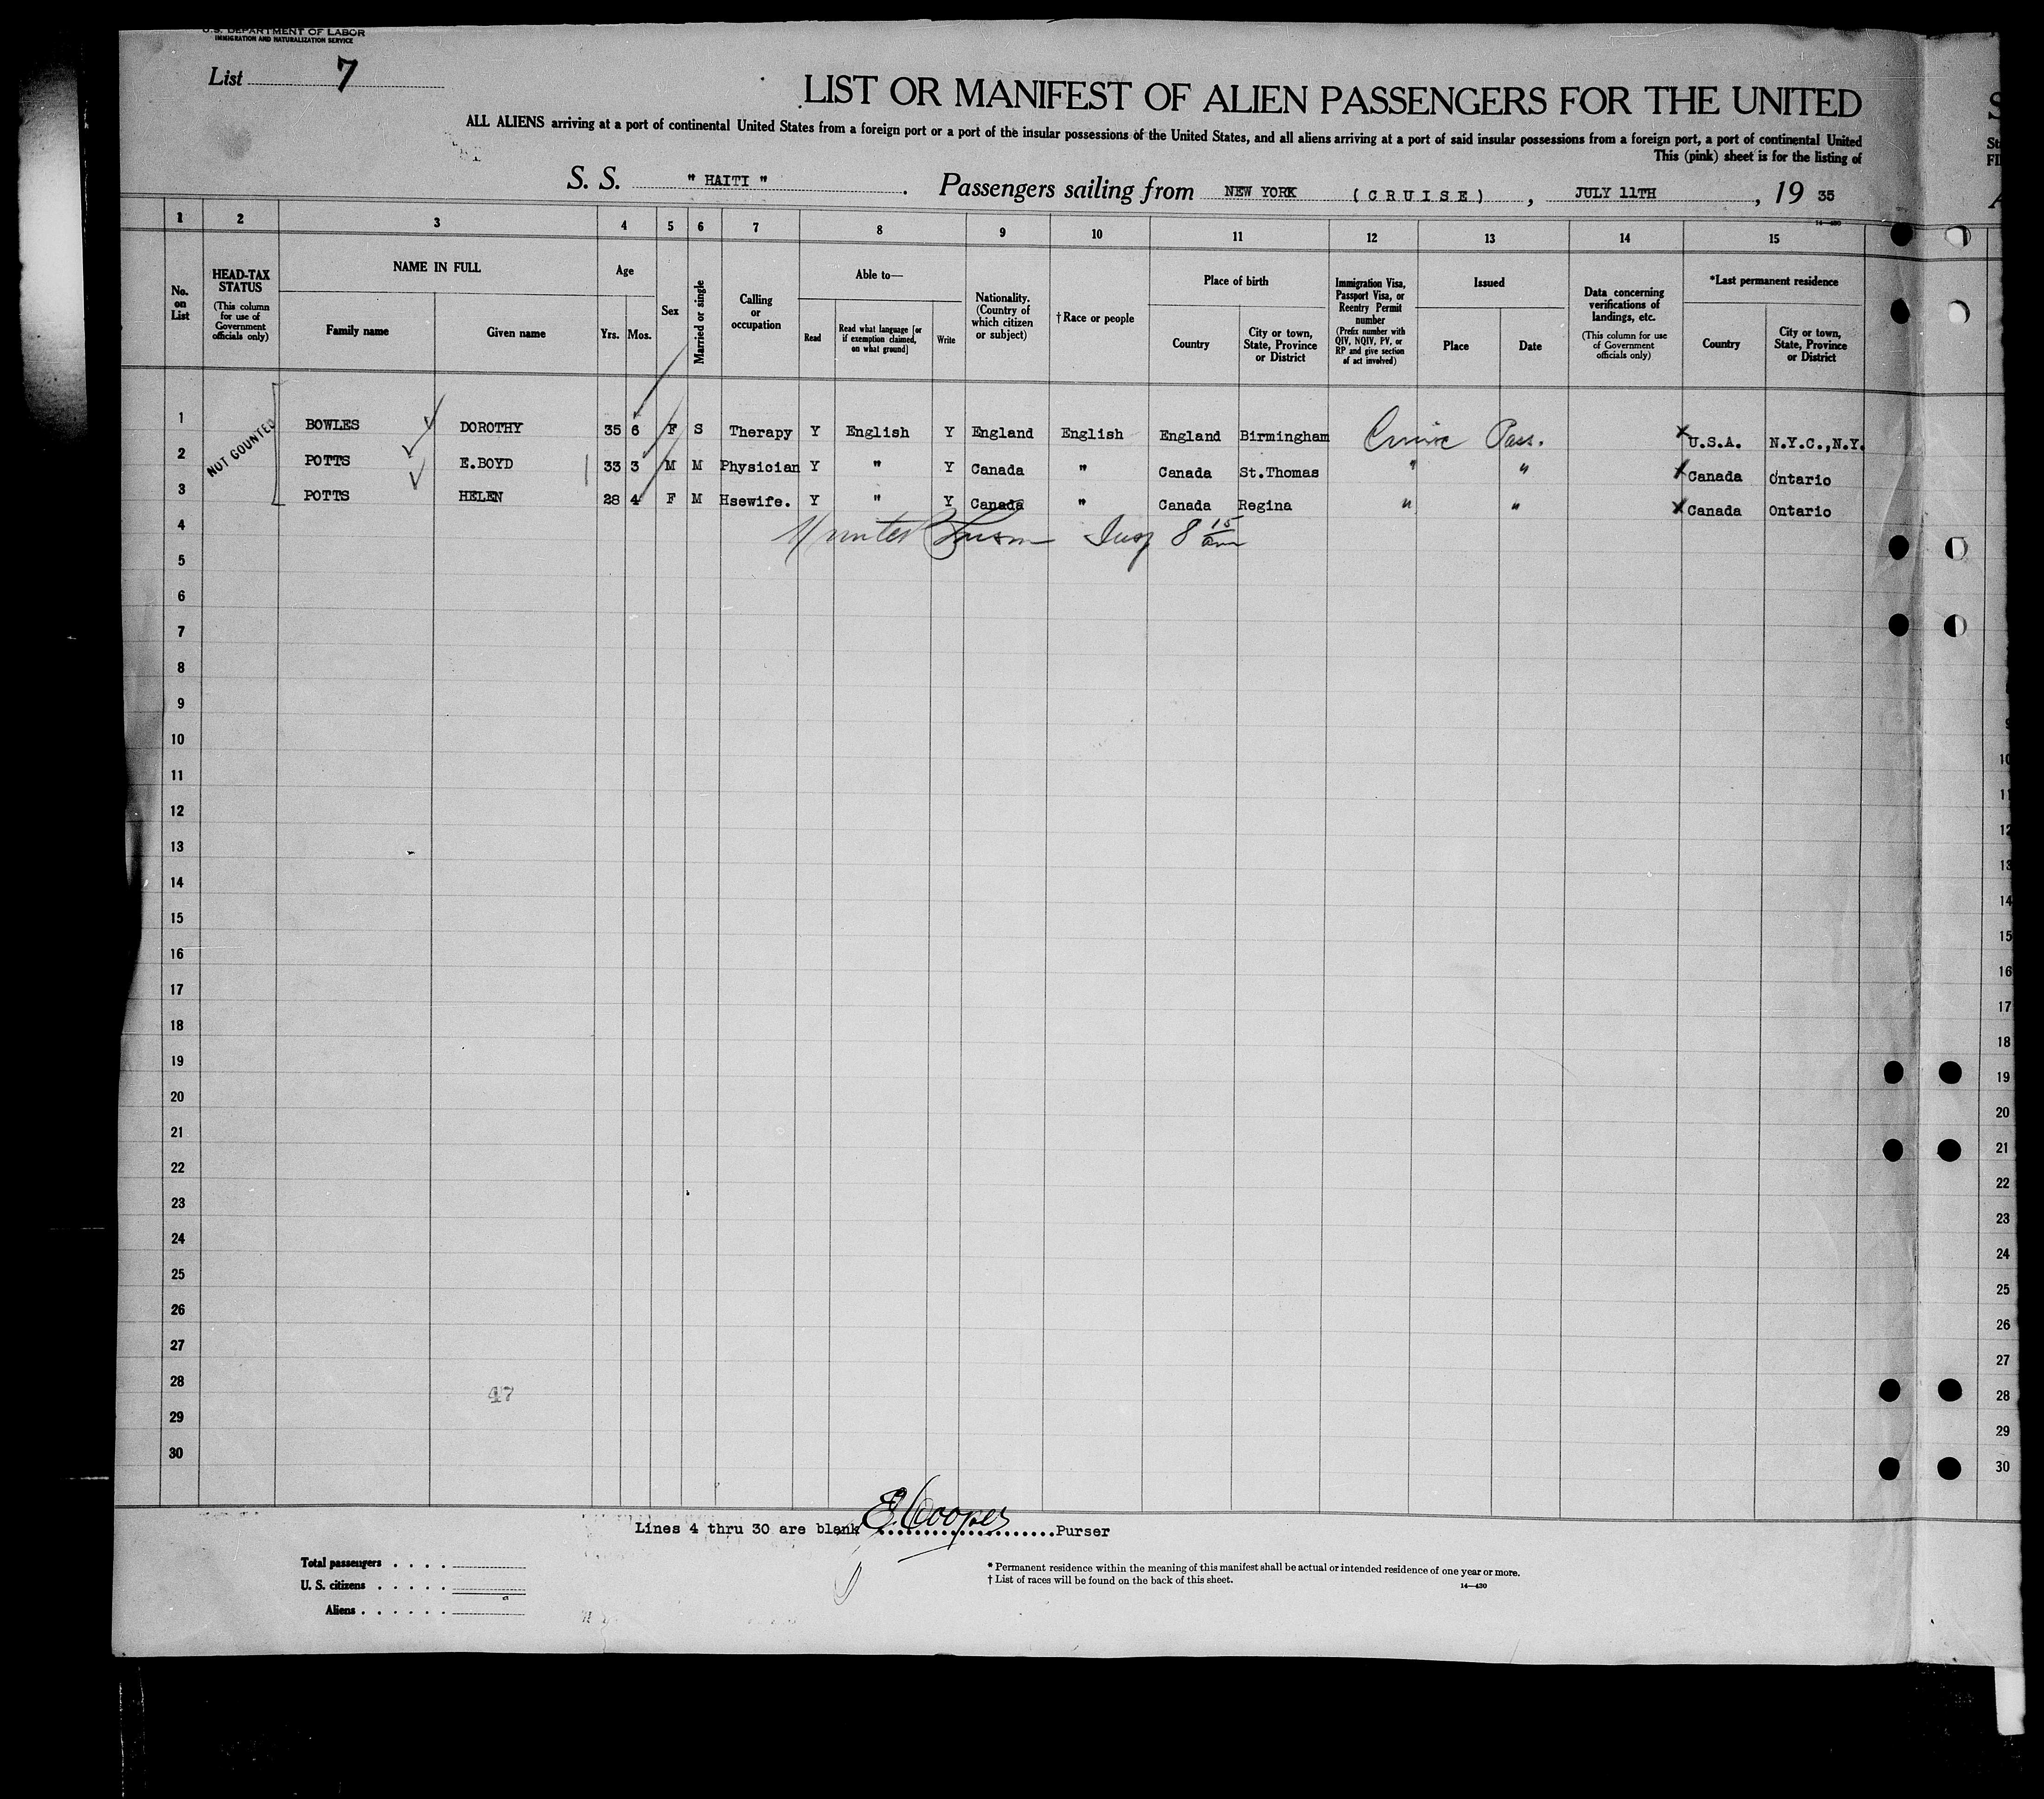 U.S. DEPARTMENT OF LABOR
IMMIGRATION AND NATURALIZATION SERVICE
List 7
LIST OR MANIFEST OF ALIEN PASSENGERS FOR THE UNITED
ALL ALIENS arriving at a port of continental United States from a foreign port or a port of the insular possessions of the United States, and all aliens arriving at a port of said insular possessions from a foreign port, a port of continental United
This (pink) sheet is for the listing of
S. S. " HAITI " . Passengers sailing from NEW YORK ( C R U I S E ) , JULY 11TH , 19 35
14-430
1 2 3 4 5 6 7 8 9 10 11 12 13 14 15
No. on List
HEAD-TAX STATUS
(This column for use of Government officials only)
NAME IN FULL
Family name
Given name
Age
Yrs. Mos.
Sex
Married or single
Calling or occupation
Able to—
Read
Read what language [or if exemption claimed, on what ground]
Write
Nationality. (Country of which citizen or subject)
† Race or people
Place of birth
Country
City or town, State, Province or District
Immigration Visa, Passport Visa, or Reentry Permit number
(Prefix number with QIV, NQIV, PV, or RP and give section of act involved)
Issued
Place
Date
Data concerning verifications of landings, etc.
(This column for use of Government officials only)
*Last permanent residence
Country
City or town, State, Province or District
NOT COUNTED
1 BOWLES DOROTHY 35 6 F S Therapy Y English Y England English England Birmingham Cruise Pass. x U.S.A. N.Y.C.,N.Y.
2 POTTS E.BOYD 33 3 M M Physician Y " Y Canada " Canada St.Thomas " " x Canada Ontario
3 POTTS HELEN 28 4 F M Hsewife. Y " Y Canada " Canada Regina " " x Canada Ontario
4 Insp 8 15 am
5
6
7
8
9
10
11
12
13
14
15
16
17
18
19
20
21
22
23
24
25
26
27
28 47
29
30
Lines 4 thru 30 are blank E. Cooper Purser
Total passengers . . . .
U. S. citizens . . . . .
Aliens . . . . . .
* Permanent residence within the meaning of this manifest shall be actual or intended residence of one year or more.
† List of races will be found on the back of this sheet.
14—430